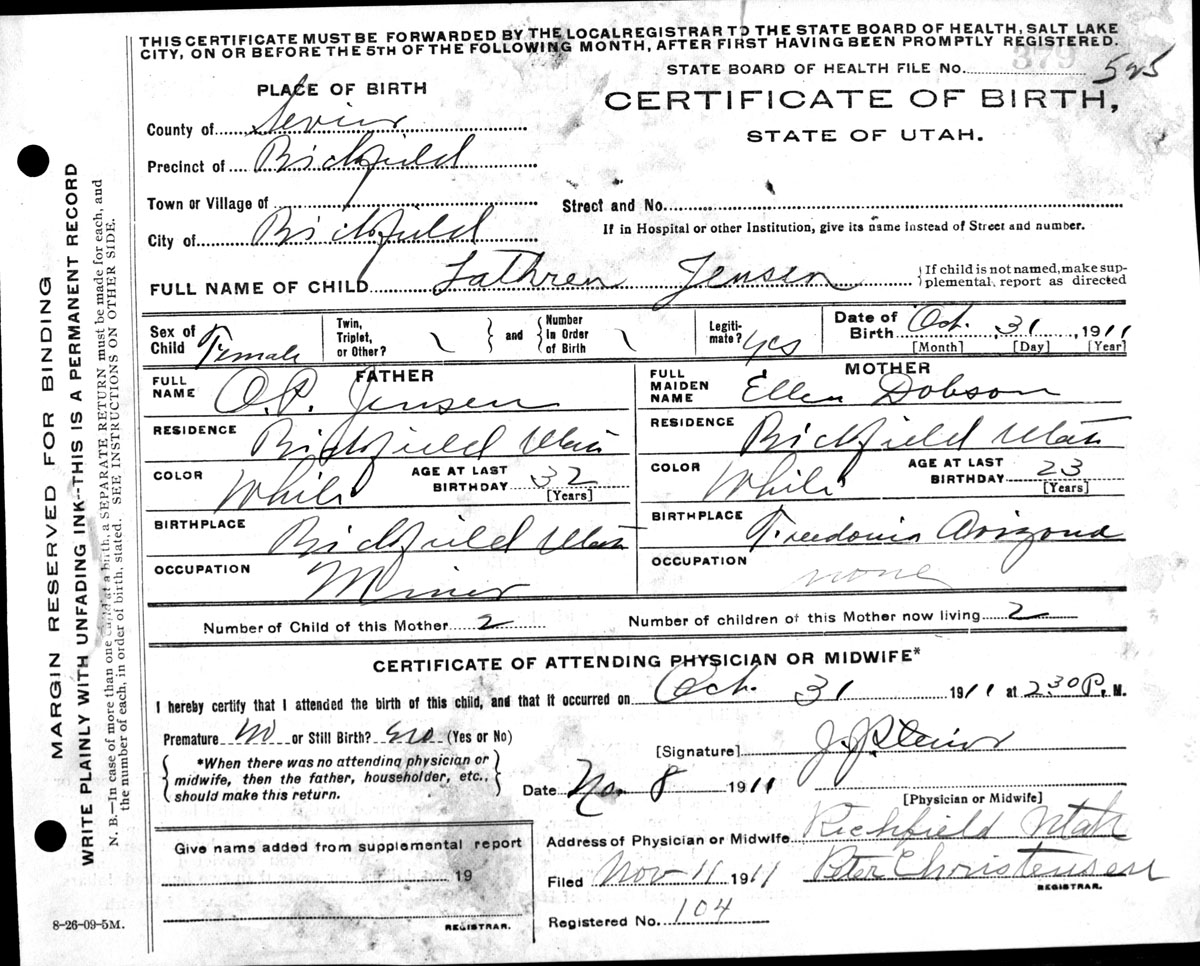 THIS CERTIFICATE MUST BE FORWARDED BY THE LOCAL REGISTRAR TO THE STATE BOARD OF HEALTH, SALT LAKE
CITY, ON OR BEFORE THE 5TH OF THE FOLLOWING MONTH, AFTER FIRST HAVING BEEN PROMPTLY REGISTERED.
STATE BOARD OF HEALTH FILE No. 379 525
PLACE OF BIRTH
CERTIFICATE OF BIRTH,
STATE OF UTAH.
County of Sevier
Precinct of Richfield
Town or Village of
Street and No.
City of Richfield
If in Hospital or other Institution, give its name instead of Street and number.
FULL NAME OF CHILD Jensen
If child is not named, make sup-
plemental, report as directed
Sex of Child Female
Twin, Triplet, or Other?
and
Number In Order of Birth
Legiti-mate? yes
Date of Birth Oct. 31, 1911
[Month] [Day] [Year]
FATHER
FULL NAME O.P. Jensen
RESIDENCE Richfield Utah
COLOR White
AGE AT LAST BIRTHDAY 32
[Years]
BIRTHPLACE Richfield Utah
OCCUPATION Miner
MOTHER
FULL MAIDEN NAME Ellen Dobson
RESIDENCE Richfield Utah
COLOR White
AGE AT LAST BIRTHDAY 23
[Years]
BIRTHPLACE Freedonia Arizona
OCCUPATION none
Number of Child of this Mother 2
Number of children of this Mother now living 2
CERTIFICATE OF ATTENDING PHYSICIAN OR MIDWIFE*
I hereby certify that I attended the birth of this child, and that it occurred on Oct. 31 1911 at 2 30 P. M.
Premature No or Still Birth? no (Yes or No)
*When there was no attending physician or
midwife, then the father, householder, etc.,
should make this return.
[Signature]
Date Nov. 8 1911
[Physician or Midwife]
Address of Physician or Midwife Richfield Utah
Filed Nov 11 1911 Peter Christensen
REGISTRAR.
Registered No. 104
Give name added from supplemental report
19
REGISTRAR.
8-26-09-5M.
MARGIN RESERVED FOR BINDING
WRITE PLAINLY WITH UNFADING INK--THIS IS A PERMANENT RECORD
N. B.—In case of more than one child at a birth, a SEPARATE RETURN must be made for each, and
the number of each, in order of birth, stated. SEE INSTRUCTIONS ON OTHER SIDE.